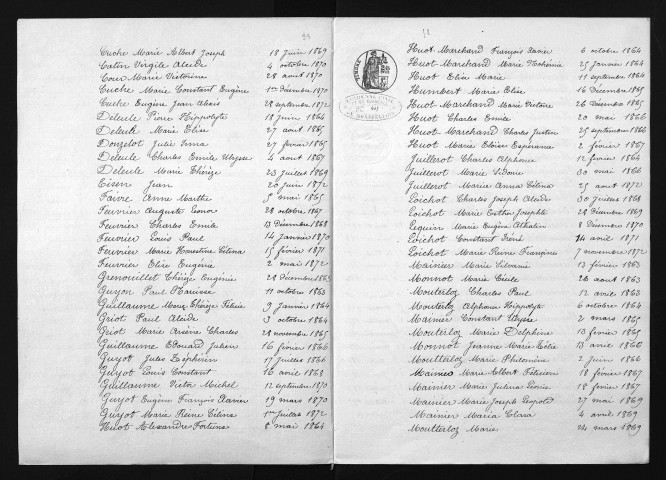 Cuche Marie Albert Joseph 18 juin 1869
Caton Virgile Alcide 4 octobre 1870
Cour Marie Victorine 28 août 1870
Cuche Marie Constant Eugène 1er Décembre 1870
Cuche Eugène Jean Alexis 28 septembre 1872
Deleule Pierre Hippolyte 18 juin 1864
Deleule Marie Elise 27 août 1865
Donzelot Julie Anna 27 février 1865
Deleule Charles Emile Ulysse 4 août 1867
Deleule Marie Thérèze 23 juillet 1869
Eisen Jean 20 juin 1872
Faivre Anne Marthe 5 mai 1865
Feuvrier Auguste 28 octobre 1867
Feuvrier Charles Emile 13 Décembre 1868
Feuvrier Louis Paul 14 janvier 1870
Feuvrier Marie Ernestine Célina 15 février 1871
Feuvrier Elise Eugénie 2 mai 1872
Grenouillet Thérèze Eugénie 28 Décembre 1863
Guzon Paul Narcisse 11 octobre 1863
Guillaume Marie Thérèze Félicie 9 janvier 1864
Griot Paul Alcide 3 octobre 1864
Griot Marie Arsène Charles 28 novembre 1865
Guillaume Edouard Julien 16 février 1866
Guyot Jules Zéphirin 17 juillet 1866
Guyot Louis Constant 16 avril 1868
Guillaume Victor Michel 12 septembre 1870
Guyot Eugène François Xavier 19 mars 1870
Guyot Marie Reine Célina 1er juillet 1872
Huot Alexandre Fortuné 8 mai 1864
Huot-Marchand François Xavier 6 octobre 1864
Huot-Marchand Marie Nohémie 25 janvier 1864
Huot Elie Marie 11 septembre 1864
Humbert Marie Elise 16 Décembre 1865
Huot-Marchand Marie Victoire 26 Décembre 1865
Huot Charles Emile 20 mai 1866
Huot-Marchand Charles Justin 25 septembre 1866
Huot Marie Eloïse Espérance 2 février 1867
Juillerot Charles Alphonse 12 février 1864
Juillerot Marie Sidonie 30 mai 1866
Juillerot Marie Anna Célina 25 août 1872
Loichot Charles Joseph Alcide 30 juillet 1868
Loichot Marie Esther Josephte 28 Décembre 1869
Lequin Marie Eugène 8 Décembre 1870
Loichot Constant Iréné 14 avril 1871
Loichot Marie Pierre François 7 novembre 1872
Mainier Marie Silvanie 13 février 1863
Monnot Marie Cécile 26 août 1863
Mouterloz Charles Paul 12 avril 1863
Mouterloz Alphonse Hippolyte 6 octobre 1864
Mainier Constant Ulysse 2 mars 1865
Mouterloz Marie Delphine 13 février 1865
Monnot Jeanne Marie Célie 13 avril 1866
Moutterloz Marie Philomène 2 juin 1866
Mainier Marie Albert 18 février 1867
Mainier Marie Léonie 18 février 1867
Mainier Marie Joseph Léopold 27 mai 1869
Mainier Maria Clara 4 avril 1869
Moutterloz Marie 24 mars 1869